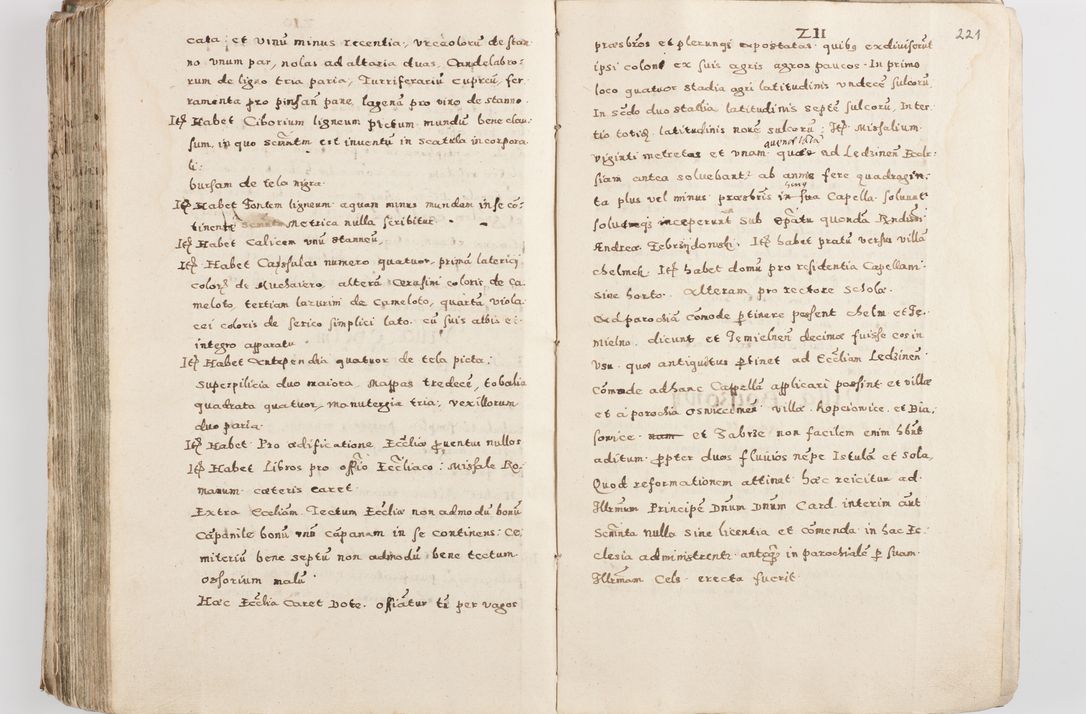 cata, et vinũ minus recentia, vrceolorũ de stan
no vnum par, nolas ad altaria duas, Candelabro-
rum de ligno tria paria, Turriferariũ cupreũ, fer
ramenta pro pinsañ pane, lagenã pro vino de stanno
Itẽ Habet Ciborium ligneum pictum mundũ bene clau
sum, in quo Scr̃ntm est inventũ in scatula in corpora
li:
bursam de tela nigra
Itẽ Habet Fontem ligneum aquam minus mundam in se cõ-
tinentẽ Metrica nulla scribitur
Itẽ Habet Calicem vnũ stanneũ
Itẽ Habet Cassulas numero quatuor, primã laterici
coloris de Muchaiero, alterã Cerusini coloris de Ca
meloto, tertiam lazurini de Cameloto, quartã viola
cei coloris de serico simplici lato. cũ suis albis et
integro apparatu
Itẽ Habet Antependia quatuor de tela picta:
Superpilicia duo maiora, Mappas tredecẽ, tobalia
quadrata quatuor, manutergia tria, vexillorum
duo paria.
Itẽ Habet Pro ædificatione Ecclĩæ proventus nullos
Itẽ Habet Libros pro offĩo Eccliaco: Missale Ro
manum cæteris caret
Extra Eccliam. Tectum Eccliæ non admodũ bonũ
Cãpanile bonũ vnã cãpanam in se continens: Ce
miteriũ bene septũ non admodũ bene tectum
ossorium malũ
Hæc Ecclia Caret Dote. offiatur tñ per vagos
ZII
221
præsbros et plerunq apostatas quibus ex diviserũt
ipsi coloni ex suis agris agros paucos. In primo
loco quatuor stadia agri latitudinis vndecẽ sulcorũ
In secdo duo stadia latitudinis septẽ sulcorũ, In ter
tio totiđ latitudinis nouẽ sulcorũ: Itẽ Missalium
viginti metretas et vnam quæ ad Ledzineñ Eccle
siam antea solvebant: ab annis fere quadragin
ta plus vel minus præsbris in sua Capella solvunt
inceperunt sub Epãtu quondã Rndissi
Andreæ Zebrzydowski. Itẽ habet pratũ versus villã
chelmek Itẽ habet domũ pro residentia Capellani
sine horto. alteram pro rectore scholæ
Ad parochiã cõmode pertinere possent chelm et Je
mielno. dicunt et Jemielneñ decimæ fuisse eos in
vsu quos antiquitus pertinet ad Eccliam Ledzineñ
cõmode ad hanc Cappellã applicari possint et villæ
et a parochia osvvieczimen villæ Kopciowice et Bia
sovice et Gabrze non facilem enim hñt
aditum propter duos fluvios nẽpe Istulã et Sola
Quod reformationem attinet hæc reicitur ad
Illrmum Principẽ Dñum Dnum Card. interim aũt
Scr̃nta nulla sine licentia et cõmenda in hac Ec
clesia administrentr antẽq in parochialẽ p suam
Illrmam Cels. erecta fuerit